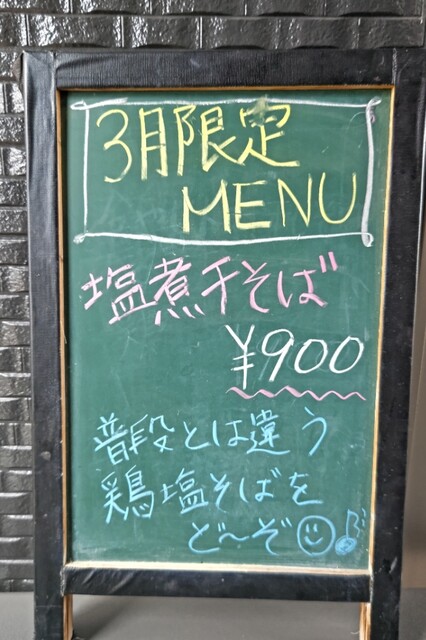 3月限定
MENU
塩煮干そば
¥900
普段とは違う
鶏塩そばを
ど〜ぞ